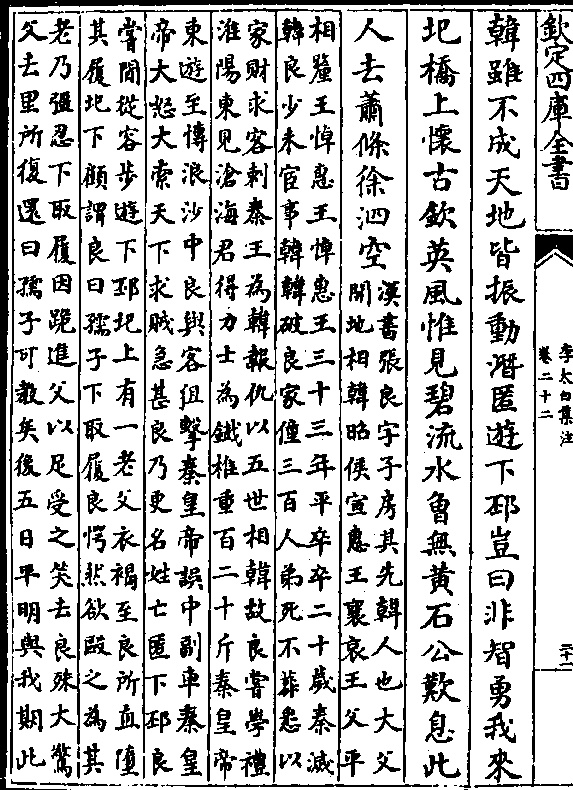 欽定四庫全書
李太白集注
卷二十二
韓雖不成天地皆振動潛匿遊下邳豈曰非智勇我來
圯橋上懷古欽英風惟見碧流水曾無黃石公歎息此
人去蕭條徐泗空
漢書張良字子房其先韓人也大父
開地相韓昭侯宣惠王襄哀王父平
相釐王悼惠王悼惠王三十三年平卒卒二十歲秦滅
韓良少未宦事韓韓破良家僮三百人弟死不葬悉以
家財求客刺秦王為韓報仇以五世相韓故良嘗學禮
淮陽東見滄海君得力士為鐵椎重百二十斤秦皇帝
東遊至博浪沙中良與客狙擊秦皇帝誤中副車秦皇
帝大怒大索天下求賊急甚良乃更名姓亡匿下邳良
嘗閒從容步遊下邳圯上有一老父衣褐至良所直墮
其履圯下顧謂良曰孺子下取履良愕然欲毆之為其
老乃彊忍下取履因跪進父以足受之笑去良殊大驚
父去里所復還曰孺子可教矣後五日平明與我期此